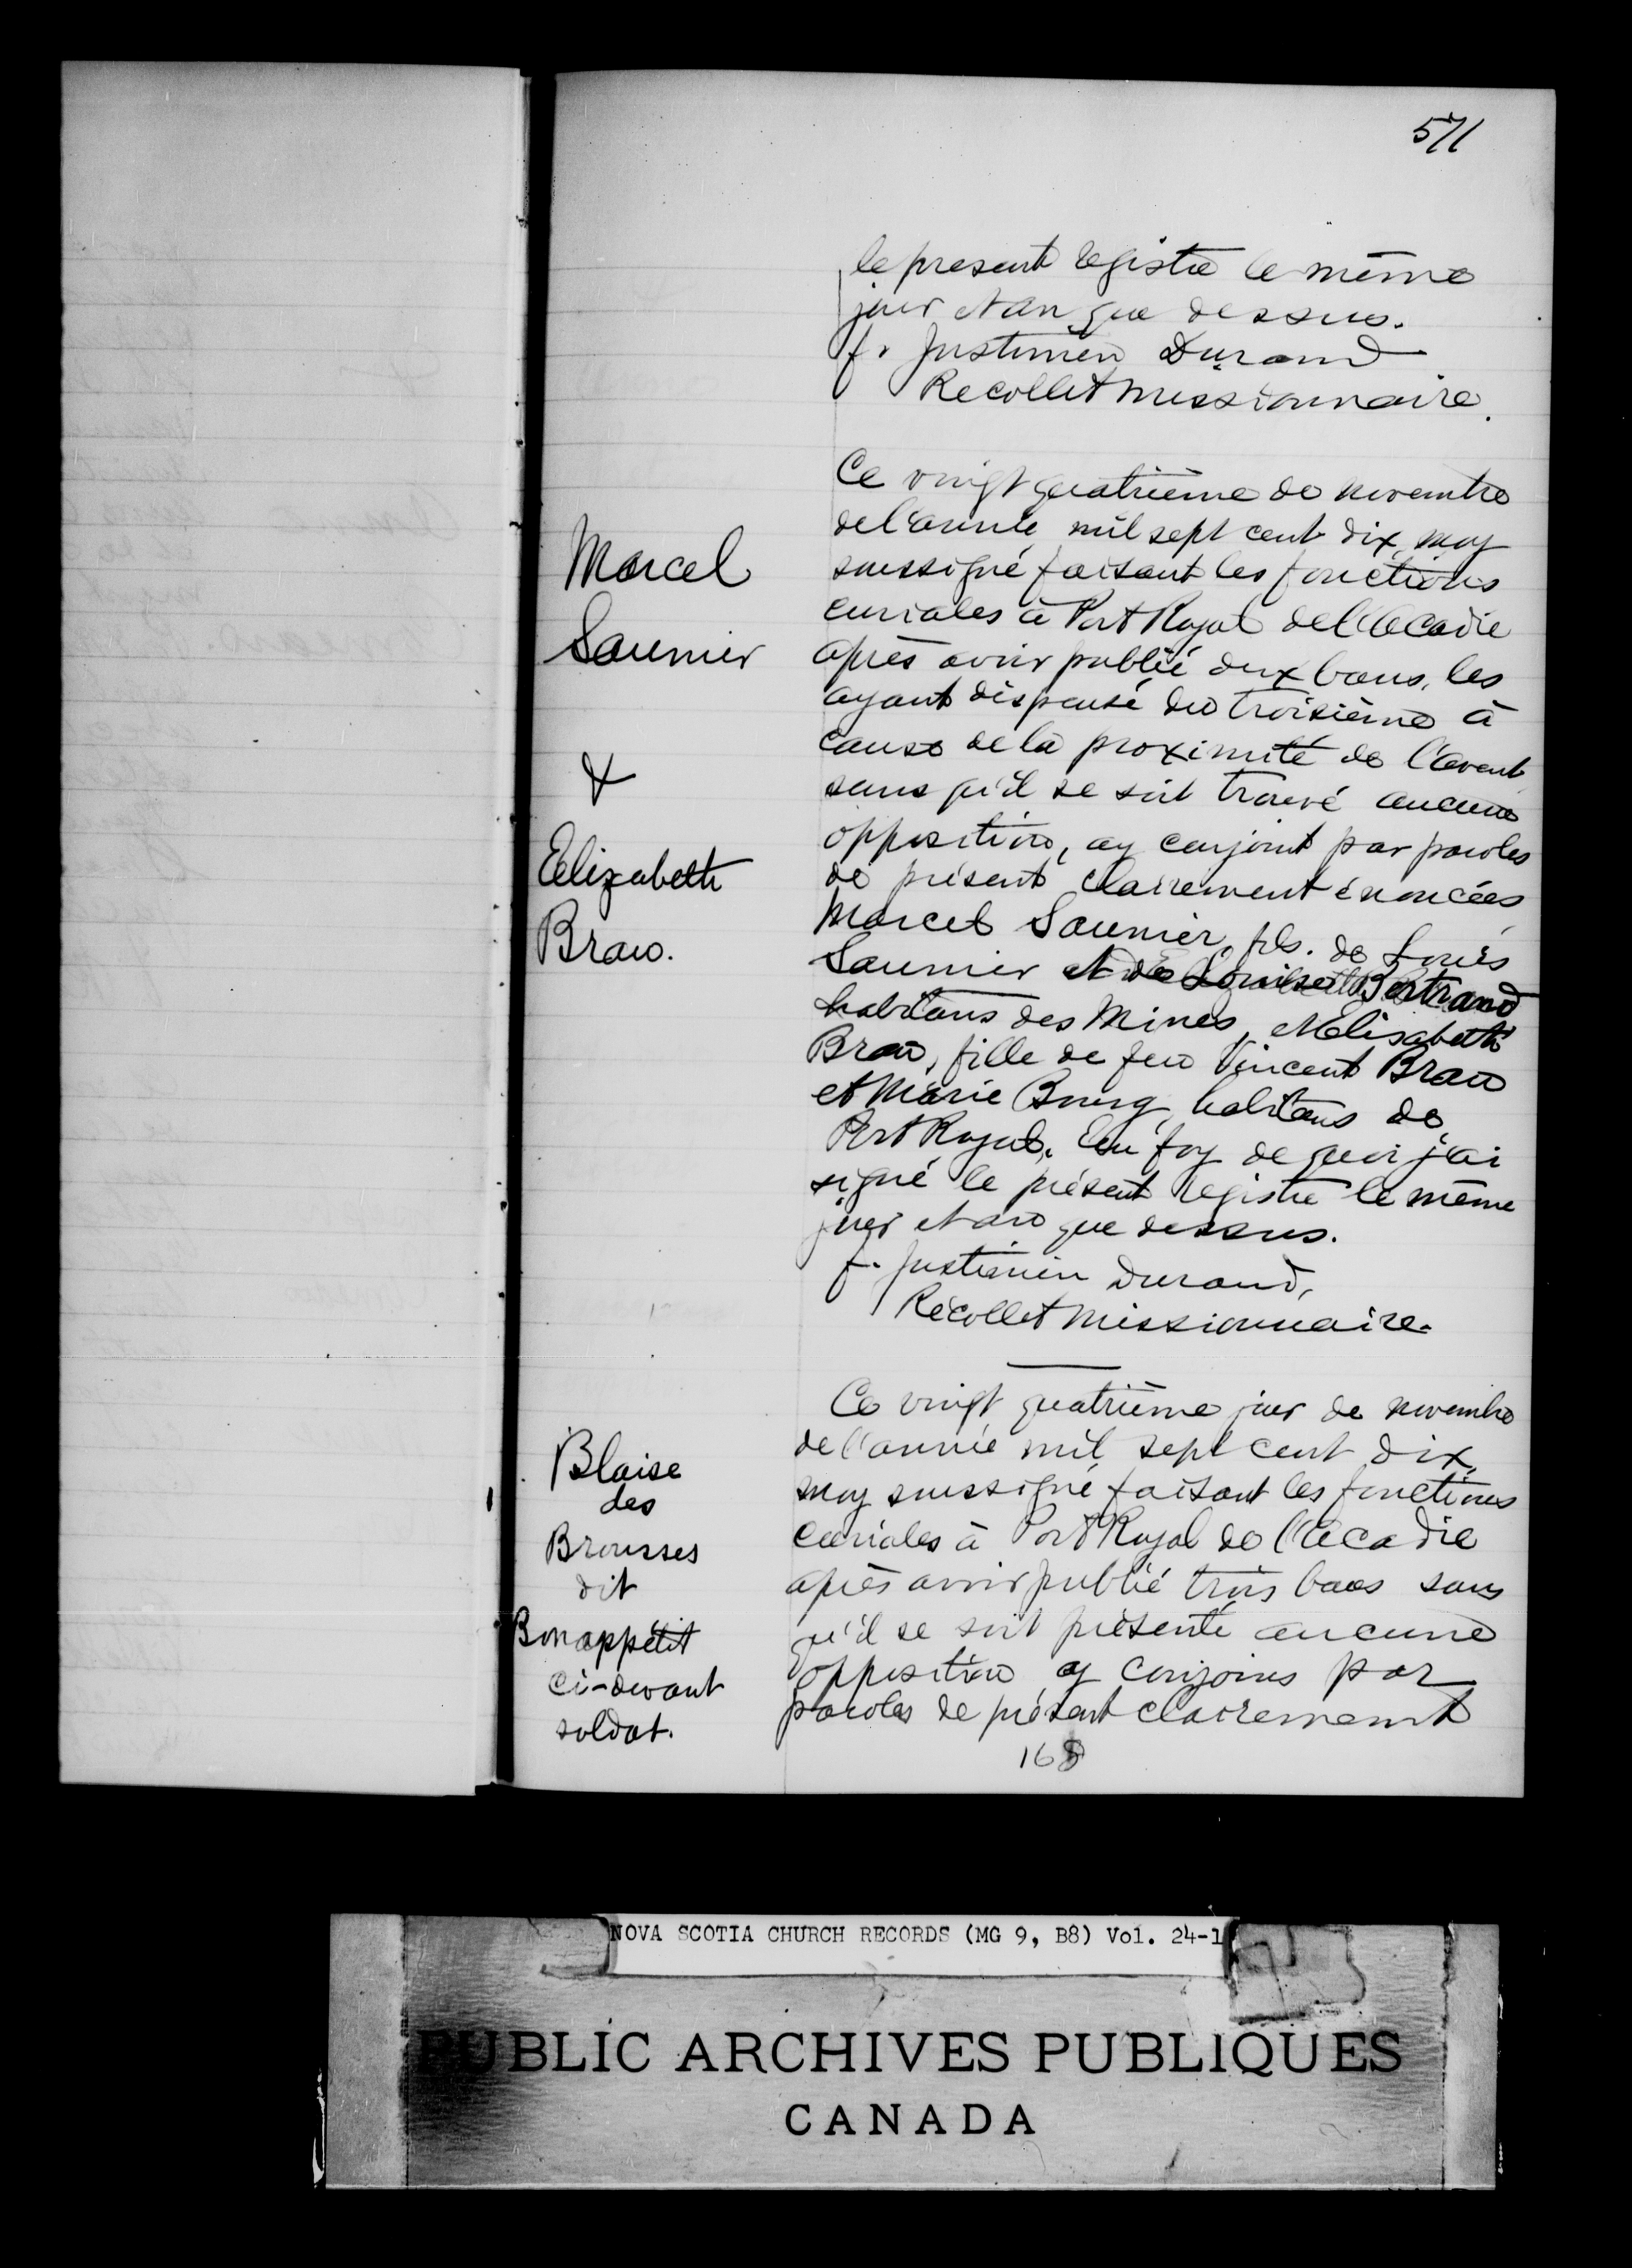 571
le present registre le même
jour et an que dessus.
f. Justinien Durand
Recollet missionnaire.
Marcel
Saunier
&
Elizabeth
Brau.
Ce vingt quatrième de novembre
de l'année mil sept cent dix, moy
soussigné faisant les fonctions
curiales à Port Royal de l'Acadie
après avoir publié deux bans, les
ayant dispensé du troisième à
cause de la proximité de l'avent
sans qu'il se soit trouvé aucune
opposition, ay conjoint par paroles
de présent clairement énoncées,
Marcel Saunier, fils. de Louis
Saunier et de Louise Bertrand
habitans des Mines, et Elisabeth
Brau, fille de feu Vincent Brau
et Marie Bourg, habitans de
Port Royal. En foy de quoi j'ai
signé le présent registre le même
jour et an que dessus.
f. Justinien Durand,
Récollet Missionnaire.
Blaise
des
Brousses
dit
Bonappétit
ci-devant
soldat.
Ce vingt quatrième jour de novembre
de l'année mil sept cent dix,
moy soussigné faisant les fonctions
curiales à Port Royal de l'Acadie
après avoir publié trois bans sans
qu'il se soit présenté aucune
opposition ay conjoins par
paroles de présent clairement
168
NOVA SCOTIA CHURCH RECORDS (MG 9, B8) Vol. 24-1
PUBLIC ARCHIVES PUBLIQUES
CANADA